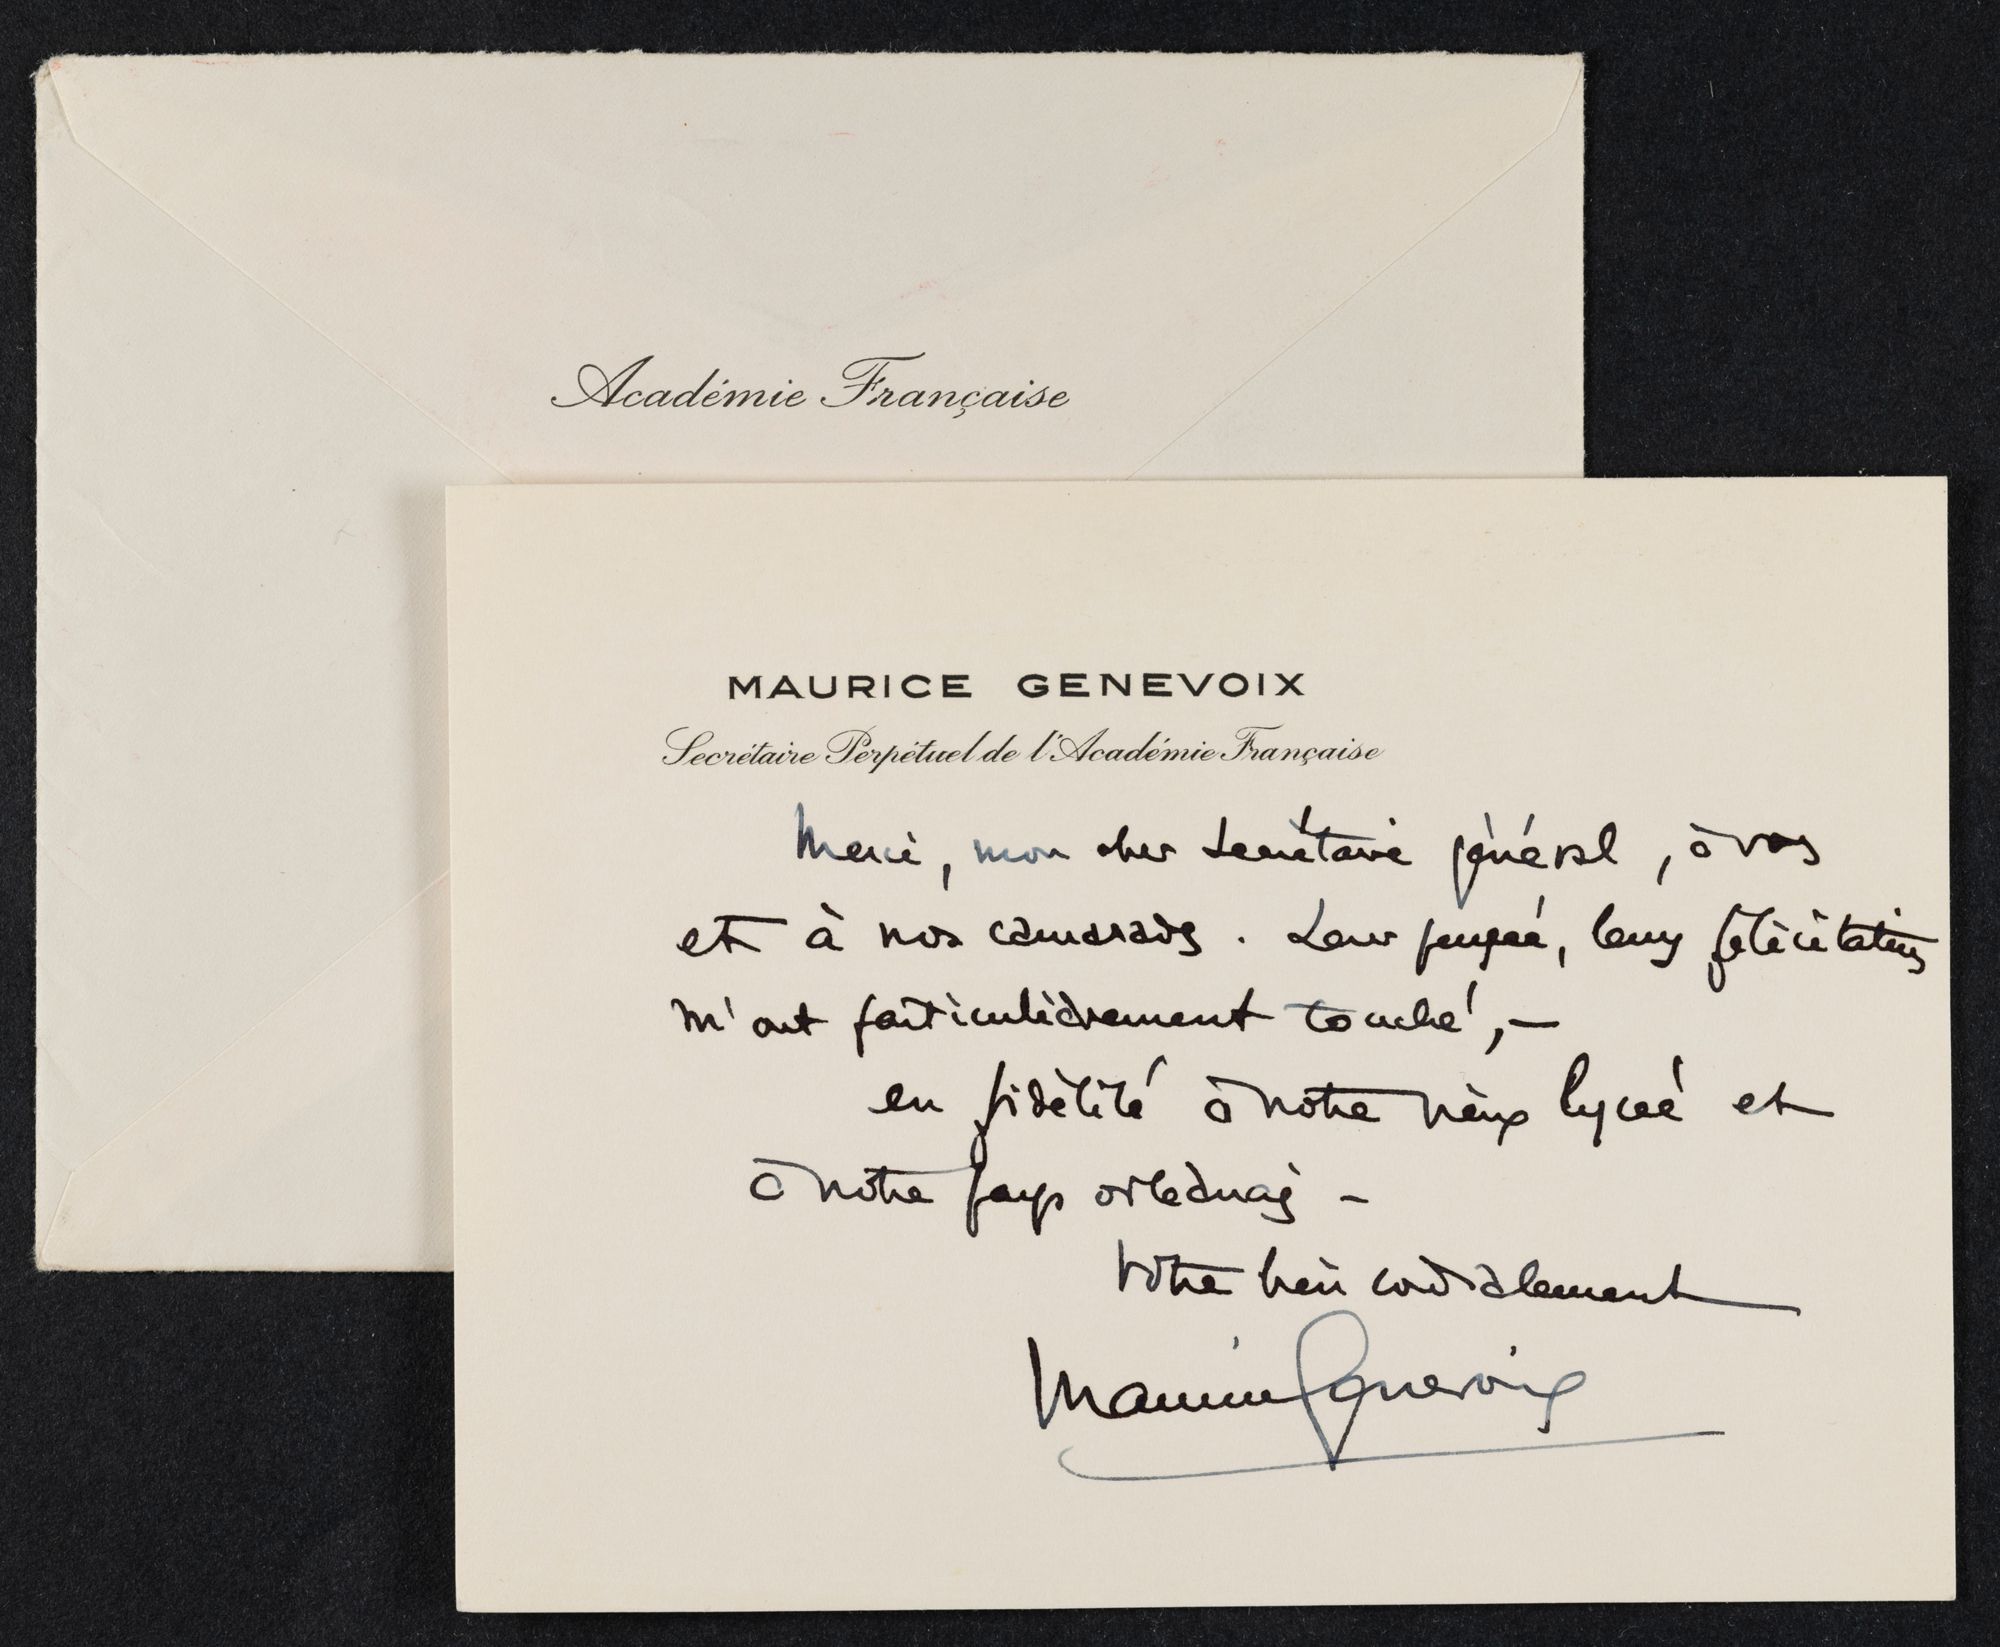 Académie Française
MAURICE GENEVOIX
Secrétaire Perpétuel de l'Académie Française
Merci, mon cher Secrétaire général, à vous
et à nos camarades. Leur pensée, leurs félicitations
m'ont particulièrement touché,—
en fidélité à notre vieux lycée et
à notre pays orléanais —
Votre bien cordialement
Maurice Genevoix